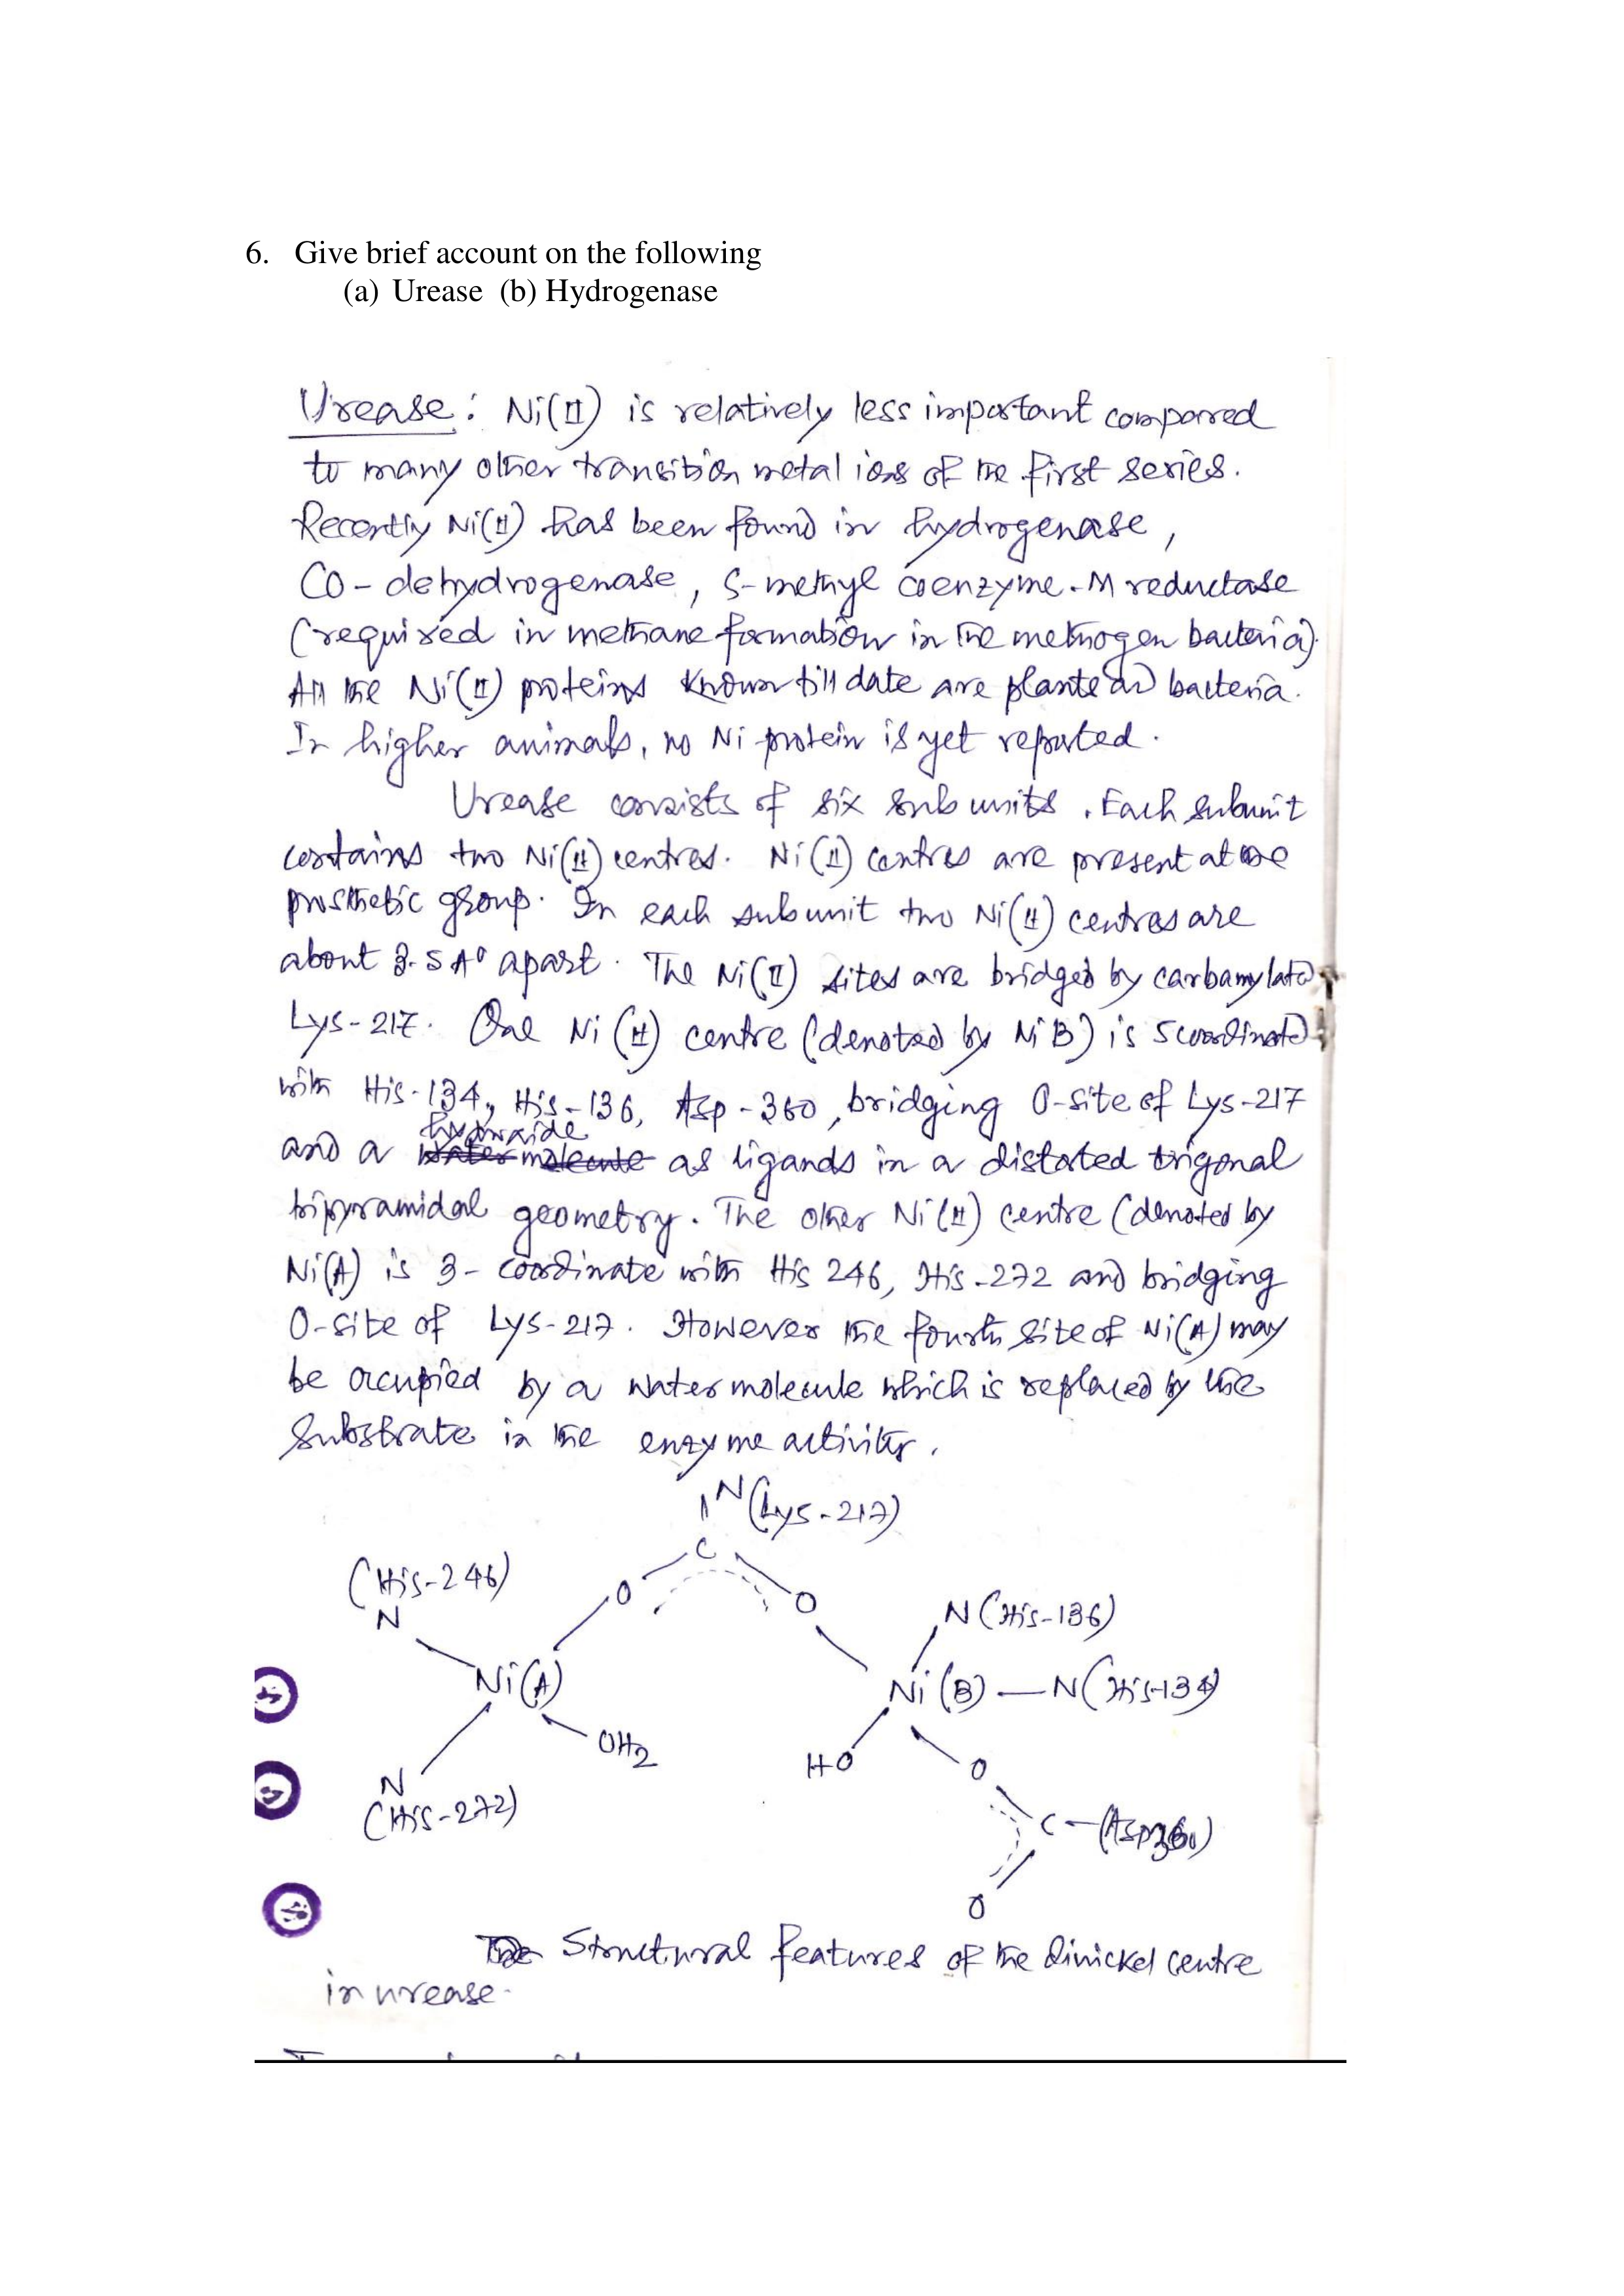 6. Give brief account on the following
(a) Urease (b) Hydrogenase
Urease: Ni(II) is relatively less important compared
to many other transition metal ions of the first series.
Recently Ni(II) has been found in hydrogenase,
CO-dehydrogenase, S-methyl coenzyme-M reductase
(required in methane formation in the methogen bacteria).
All the Ni(II) proteins known till date are plants and bacteria.
In higher animals, no Ni protein is yet reported.
Urease consists of six sub units. Each subunit
contains two Ni(II) centres. Ni(II) centres are present at the
prosthetic group. In each subunit two Ni(II) centres are
about 3.5 A° apart. The Ni(II) sites are bridged by carbamylated
Lys-217. One Ni(II) centre (denoted by NiB) is 5 coordinated
with His-134, His-136, Asp-360, bridging O-site of Lys-217
hydroxide
and a water molecule as ligands in a distorted trigonal
bipyramidal geometry. The other Ni(II) centre (denoted by
Ni(A) is 3-coordinate with His 246, His-272 and bridging
O-site of Lys-217. However the fourth site of Ni(A) may
be occupied by a water molecule which is replaced by the
substrate in the enzyme activity.
N(Lys-217)
C
(His-246)
N
O
O
N(His-136)
Ni(A)
Ni(B)
N(His-134)
OH2
HO
O
N
(His-272)
C
(Asp360)
O
The Structural features of the dinickel centre
in urease.